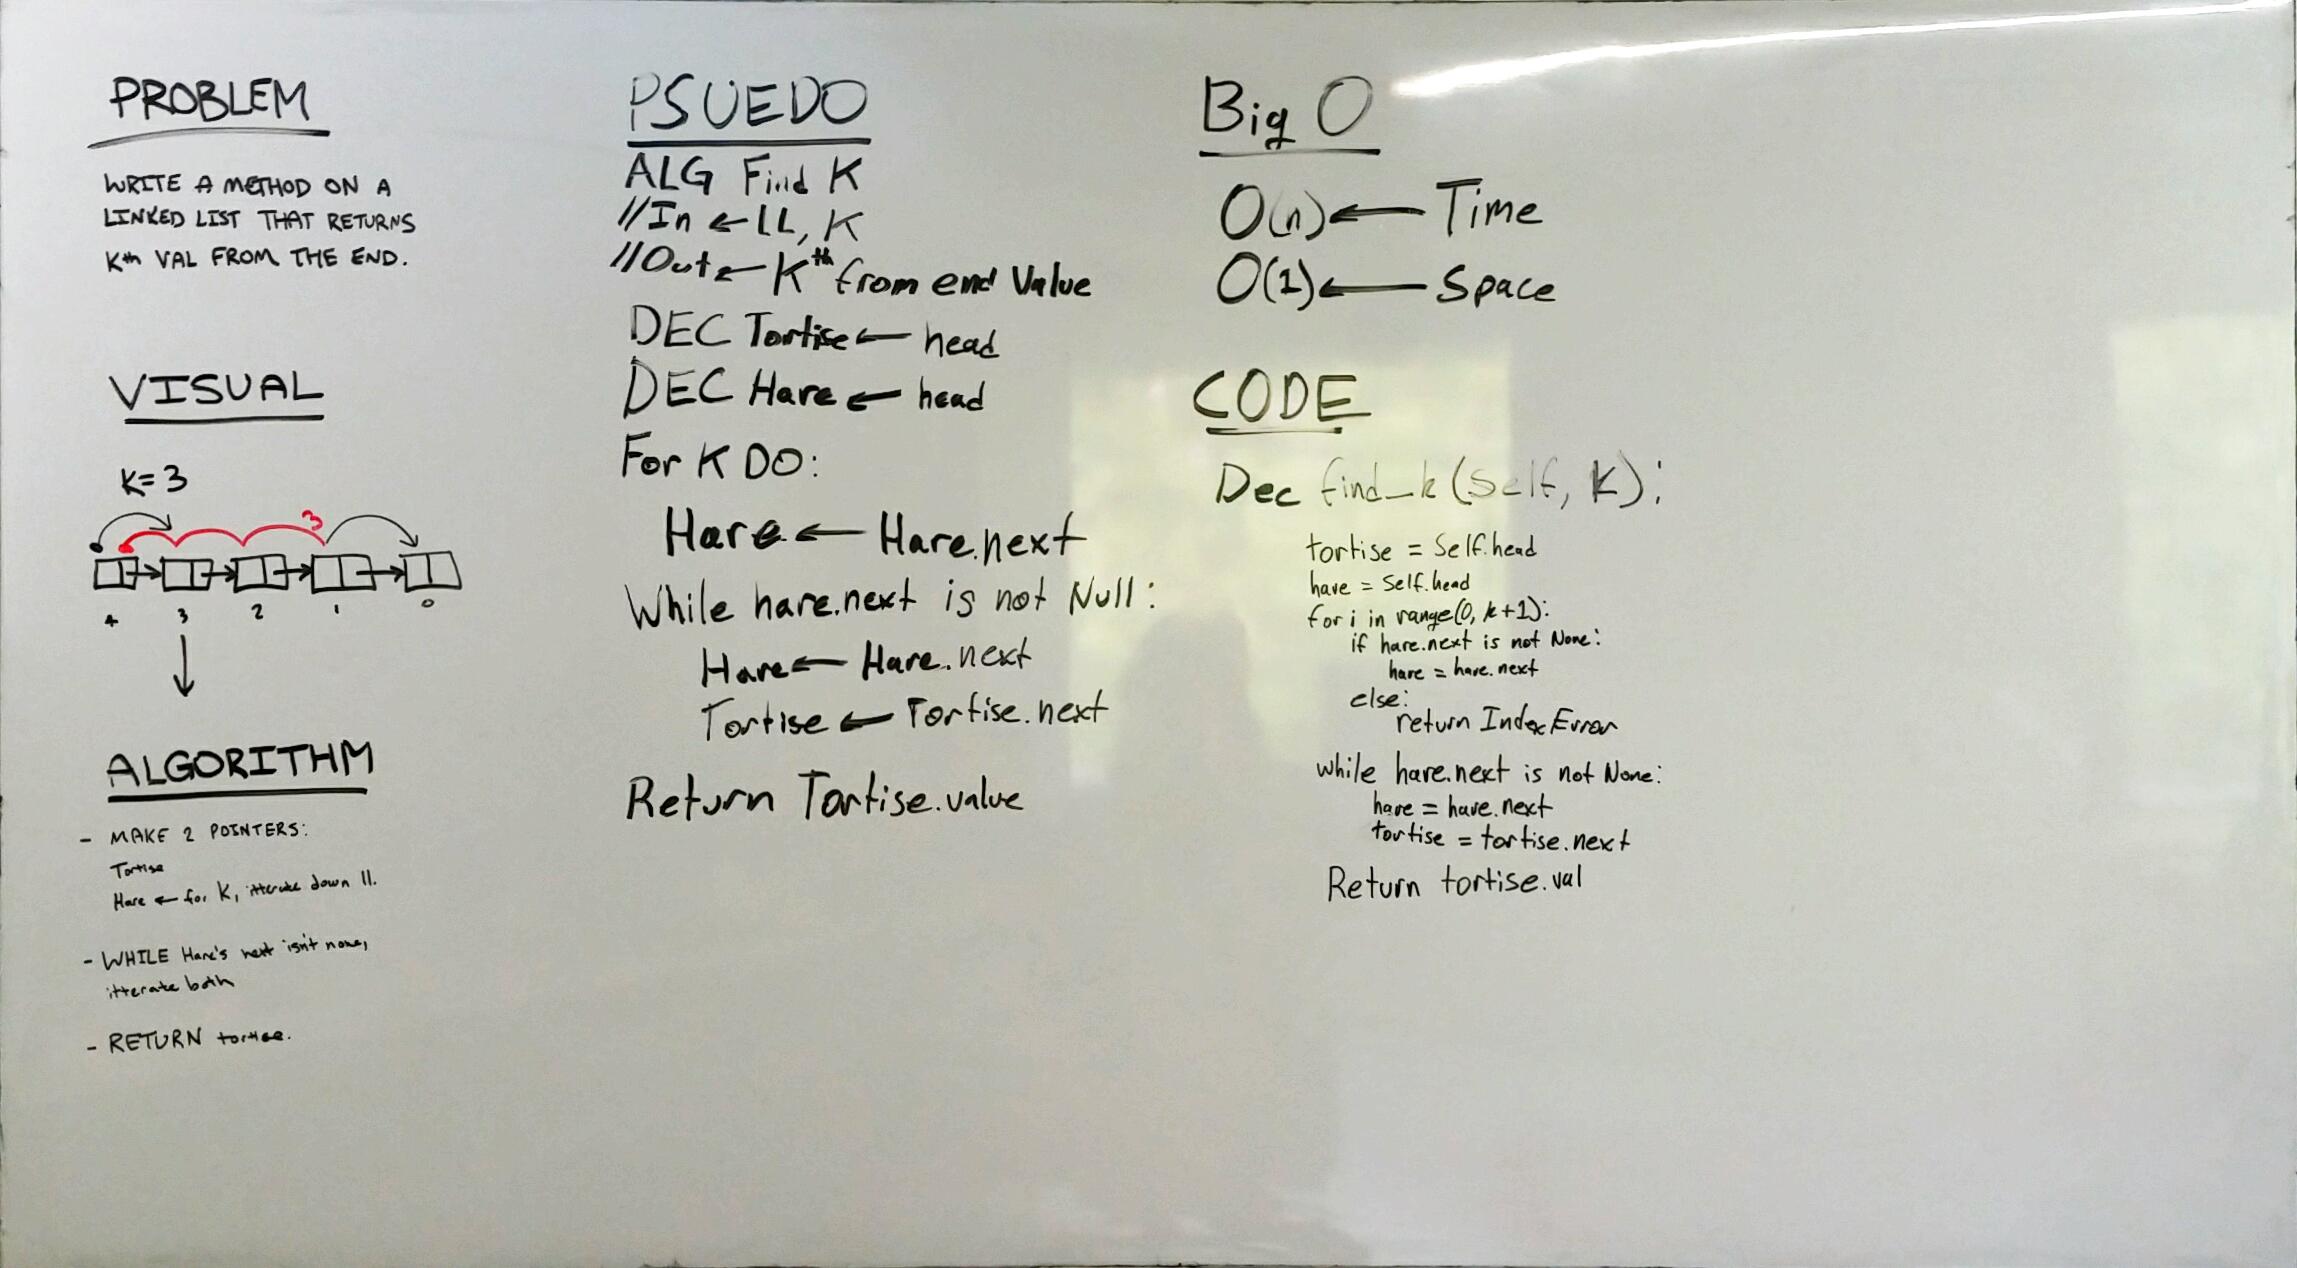 PROBLEM
WRITE A METHOD ON A
LINKED LIST THAT RETURNS
Kth VAL FROM THE END.
VISUAL
K=3
3
4 3 2 1 0
ALGORITHM
- MAKE 2 POINTERS:
Tortise
Hare ← for K, itterate down ll.
- WHILE Hare's next isn't none,
itterate both
- RETURN tortise.
PSUEDO
ALG Find K
//In ← LL, K
//Out ← Kth from end Value
DEC Tortise ← head
DEC Hare ← head
For K DO:
Hare ← Hare.next
While hare.next is not Null:
Hare ← Hare.next
Tortise ← Tortise.next
Return Tortise.value
Big O
O(n) ← Time
O(1) ← Space
CODE
Dec find_k (Self, K):
tortise = Self.head
hare = Self.head
for i in range(0, k+1):
if hare.next is not None:
hare = hare.next
else:
return IndexError
while hare.next is not None:
hare = hare.next
tortise = tortise.next
Return tortise.val